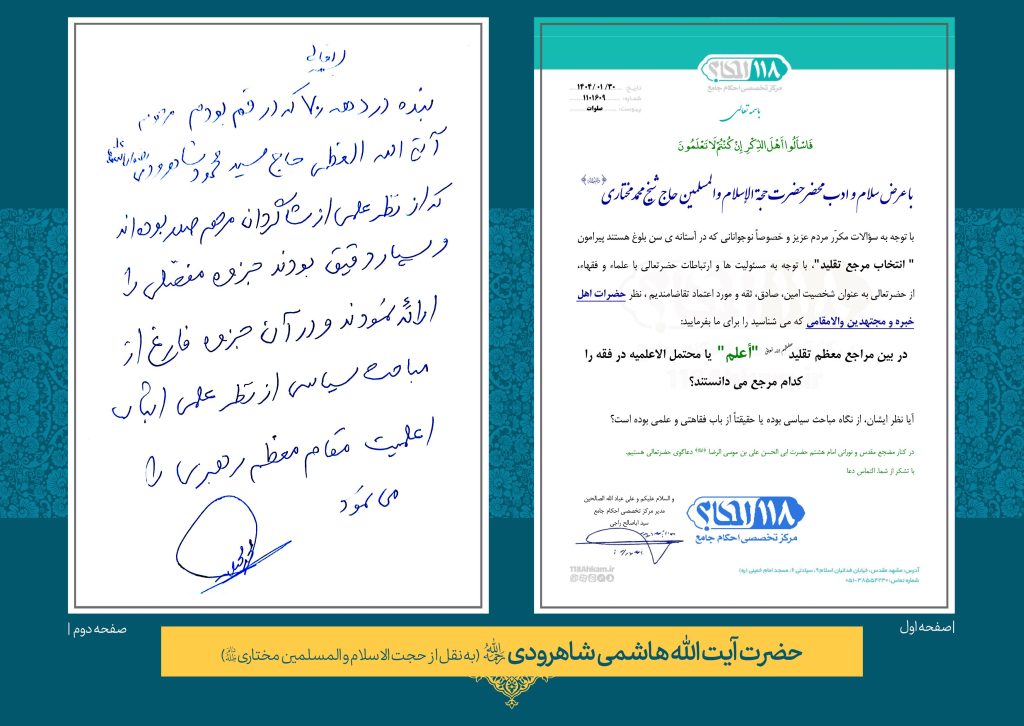 ۱۱۸ احکام؟
مرکز تخصصی احکام جامع
تاریخ: ۱۴۰۴/۰۱/۳۰
شماره: ۱۱۰۱۶۰۹
پیوست: صلوات
باسمه تعالی
فَاسْأَلُوا أَهْلَ الذِّكْرِ إِنْ كُنْتُمْ لَا تَعْلَمُونَ
با عرض سلام و ادب محضر حضرت حجة الإسلام و المسلمین حاج شیخ محمد مختاری
با توجه به سؤالات مکرّر مردم عزیز و خصوصاً نوجوانانی که در آستانه ی سن بلوغ هستند پیرامون
" انتخاب مرجع تقلید"، با توجه به مسئولیت ها و ارتباطات حضرتعالی با علماء و فقهاء،
از حضرتعالی به عنوان شخصیت امین، صادق، ثقه و مورد اعتماد تقاضامندیم ، نظر حضرات اهل
خبره و مجتهدین والامقامی که می شناسید را برای ما بفرمایید:
در بین مراجع معظم تقلید "أعلم" یا محتمل الاعلمیه در فقه را
کدام مرجع می دانستند؟
آیا نظر ایشان، از نگاه مباحث سیاسی بوده یا حقیقتاً از باب فقاهتی و علمی بوده است؟
در کنار مضجع مقدس و نورانی امام هشتم حضرت ابی الحسن علی بن موسی الرضا دعاگوی حضرتعالی هستیم.
با تشکر از شما. التماس دعا
و السلام علیکم و علی عباد الله الصالحین
مدیر مرکز تخصصی احکام جامع
سید اباصالح راجی
۱۱۸ احکام؟
مرکز تخصصی احکام جامع
118Ahkam.ir
آدرس: مشهد مقدس، خیابان فدائیان اسلام۹، سیادتی ۶، مسجد امام خمینی (ره)
شماره تماس: ۰۵۱-۳۸۵۵۴۲۳۰
|صفحه اول
بنده در دهه ۷۰ که در قم بودم مرحوم
آیة الله العظمی حاج سید محمود شاهرودی
که از نظر علمی از شاگردان مرحوم صدر بوده اند
و بسیار دقیق بودند جزوه مفصّلی را
ارائه نمودند و در آن جزوه فارغ از
مباحث سیاسی از نظر علمی اثبات
اعلمیت مقام معظم رهبری را
می نمود
صفحه دوم |
حضرت آیت الله هاشمی شاهرودی (به نقل از حجت الاسلام والمسلمین مختاری)